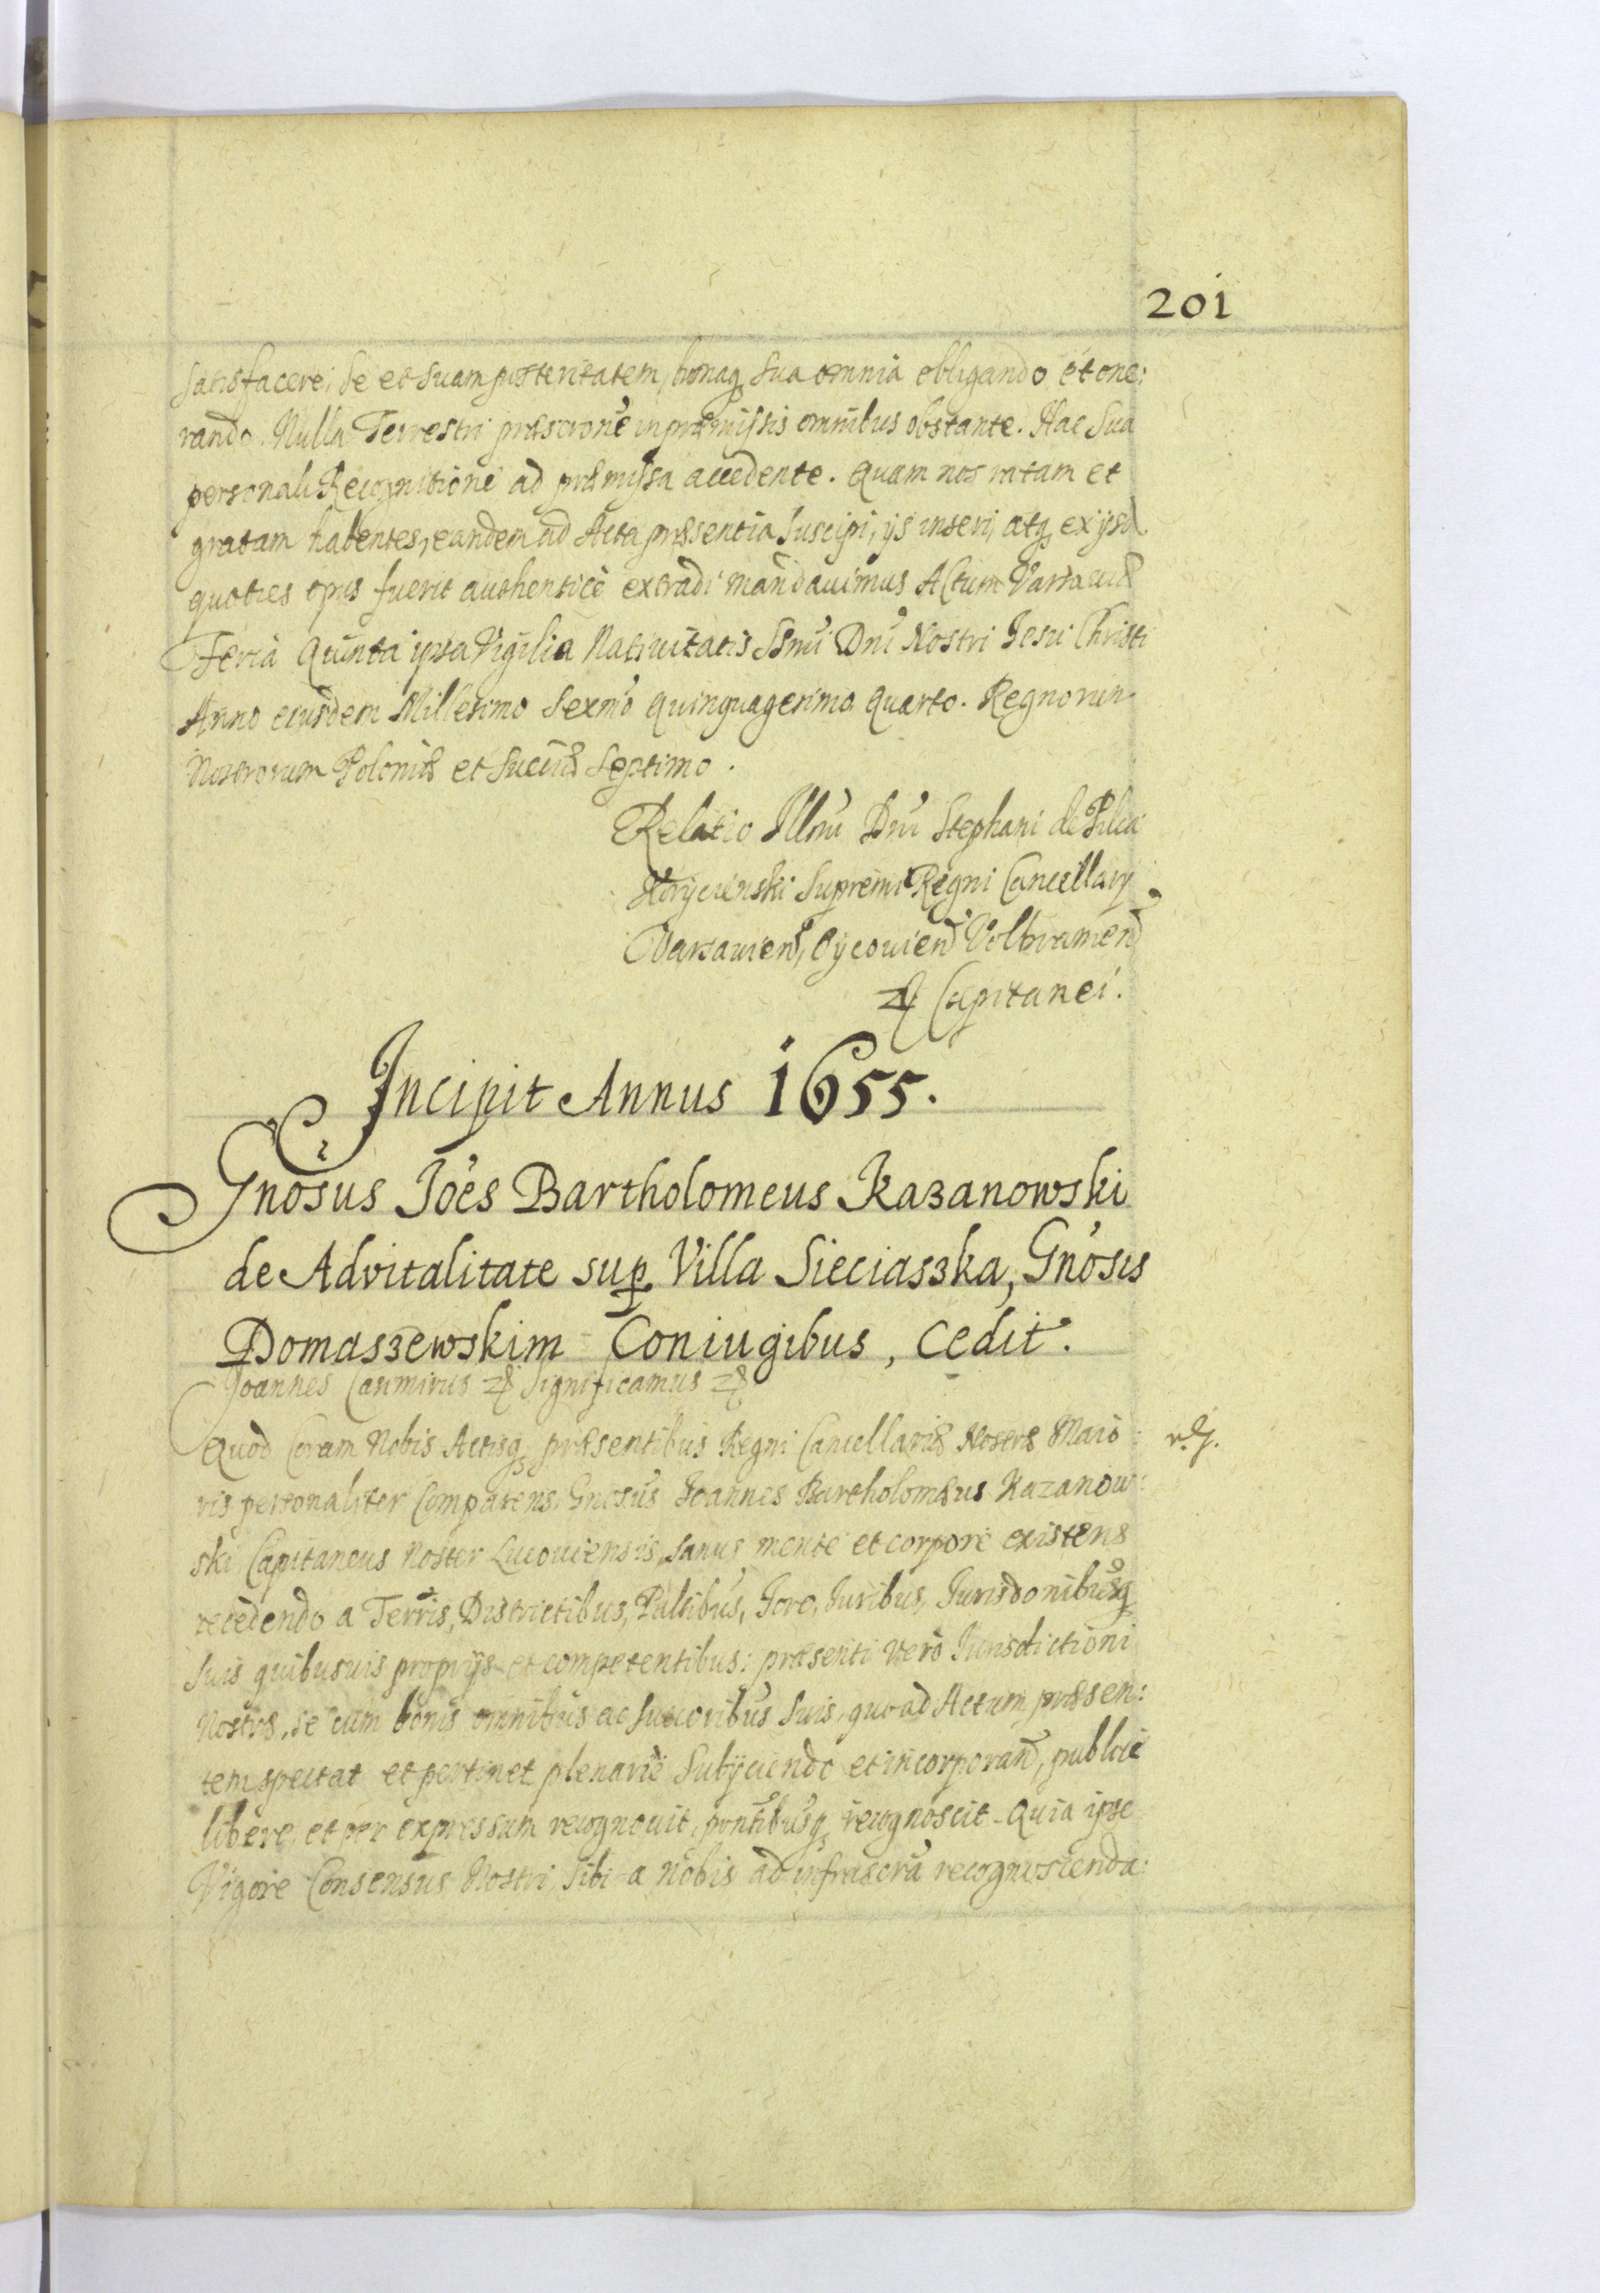 201
satisfacere; se et suam posteritatem, bonaq sua omnia obligando et one:
rando. Nulla Terrestri præscrone in præmissis omnibus obstante. Hac sua
personali Recognitione ad præmissa accedente. Quam nos ratam et
gratam habentes, eandem ad Acta præsentia suscipi, ijs inseri, atq ex ijsd
quoties opus fuerit authentice extradi mandavimus Actum Varsaviæ
Feria Quinta ipsa Vigilia Nativitatis Ssmi Dni Nostri Jesu Christi
Anno eiusdem Millesimo Sexmo quinquagesimo quarto. Regnorum
Nostrorum Poloniæ et Sueciæ Septimo.
Relatio Illmi Dni Stephani de Pilca
Korÿcinski Supremi Regni Cancellarij
Varsavien, Oÿcovien Volbramen
Capitanei.
Incipit Annus 1655.
Gnosus Joes Bartholomeus Kazanowski
de Advitalitate sup Villa Sieciaszka, Gnosis
Domaszewskim Coniugibus, Cedit.
Joannes Casimirus Significamus
Quod Coram Nobis Actisq præsentibus Regni Cancellariæ Nostræ Maio:
ris personaliter Comparens Gnosus Joannes Bartholomæus Kazanow:
ski Capitaneus Noster Lucoviensis, sanus mente et corpore existens
recedendo a Terris, Districtibus, Paltibus, Foro, Juribus, Jurisdonibusq
suis quibusvis proprijs et competentibus: præsenti vero Jurisdictioni
Nostræ, se cum bonis omnibus ac succoribus suis, quo ad Actum præsen:
tem spectat et pertinet plenarie subÿciendo et incorporan, publice
libere, et per expressum recognovit, pntibusq recognoscit. Quia ipse
Vigore Consensus Nostri, sibi a Nobis ad infrascra recognoscenda: